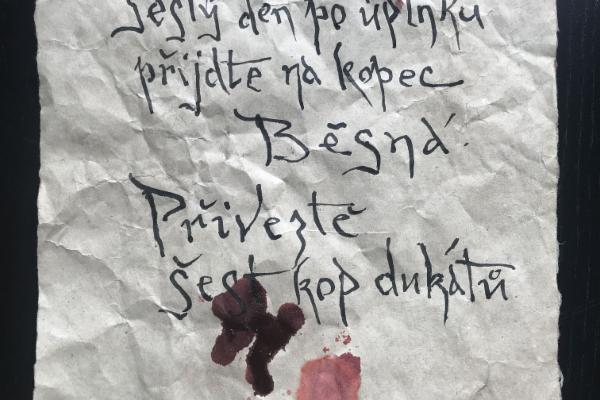 šestý den po úplňku
přijdte na kopec
Běsná.
Přivezte
šest kop dukátů